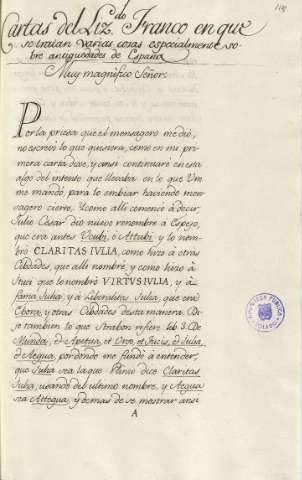 Cartas del Liz.do Franco en que
se tratan varias cosas especialmente so-
bre antiguedades de España
Muy magnifico Señor:
Por la priesa que el mensagero me dió,
no escreví lo que quisiera, como en mi pri-
mera carta dice, y ansi continuaré en esta
algo del intento que llevaba en lo que Vm
me mandó, para lo embiar haciendo men-
sagero cierto. Y como alli comencè à decir,
Julio Cesar dió nuevo renombre à Espejo,
que era antes Vcubi, ò Attubi, y lo nom-
brò CLARITAS IVLIA, como hizo à otras
Cibdades, que alli nombrè, y como hizo à
Ituci que le nombrò VIRTVS IVLIA, y à
fama Julia, y à Liberalitas Julia, que era
Ebora, y otras Cibdades desta manera. Di-
se tambien lo que Strabon refiere lib 3. De
Munda, & Apetua, et Urso, et Tucis, & Julia,
& Aegua, por donde me fundè à entender,
que Julia sea la que Plinio dice Claritas
Julia, usando del ultimo nombre, y Aegua
sea Attegua, y demas de se mostrar ansi
A